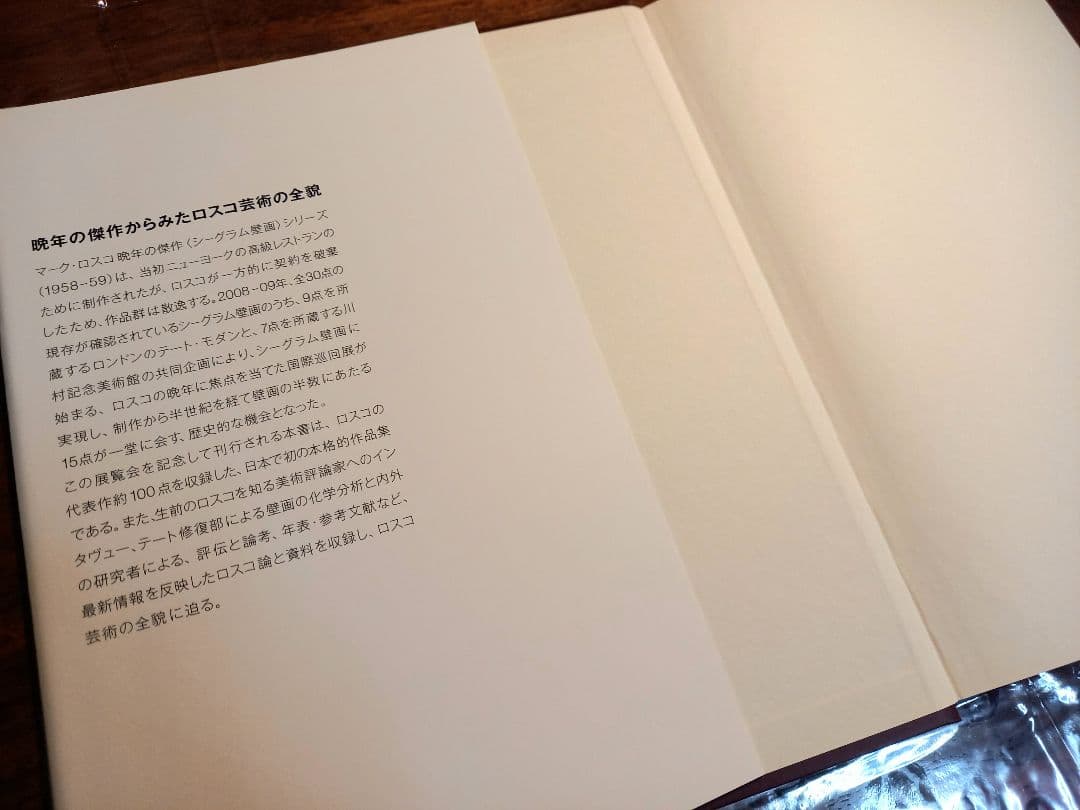 晩年の傑作からみたロスコ芸術の全貌
マーク・ロスコ晩年の傑作〈シーグラム壁画〉シリーズ
(1958–59)は、当初ニューヨークの高級レストランの
ために制作されたが、ロスコが一方的に契約を破棄
したため、作品群は散逸する。2008–09年、全30点の
現存が確認されているシーグラム壁画のうち、9点を所
蔵するロンドンのテート・モダンと、7点を所蔵する川
村記念美術館の共同企画により、シーグラム壁画に
始まる、ロスコの晩年に焦点を当てた国際巡回展が
実現し、制作から半世紀を経て壁画の半数にあたる
15点が一堂に会す、歴史的な機会となった。
この展覧会を記念して刊行される本書は、ロスコの
代表作約100点を収録した、日本で初の本格的作品集
である。また、生前のロスコを知る美術評論家へのイン
タヴュー、テート修復部による壁画の化学分析と内外
の研究者による、評伝と論考、年表・参考文献など、
最新情報を反映したロスコ論と資料を収録し、ロスコ
芸術の全貌に迫る。